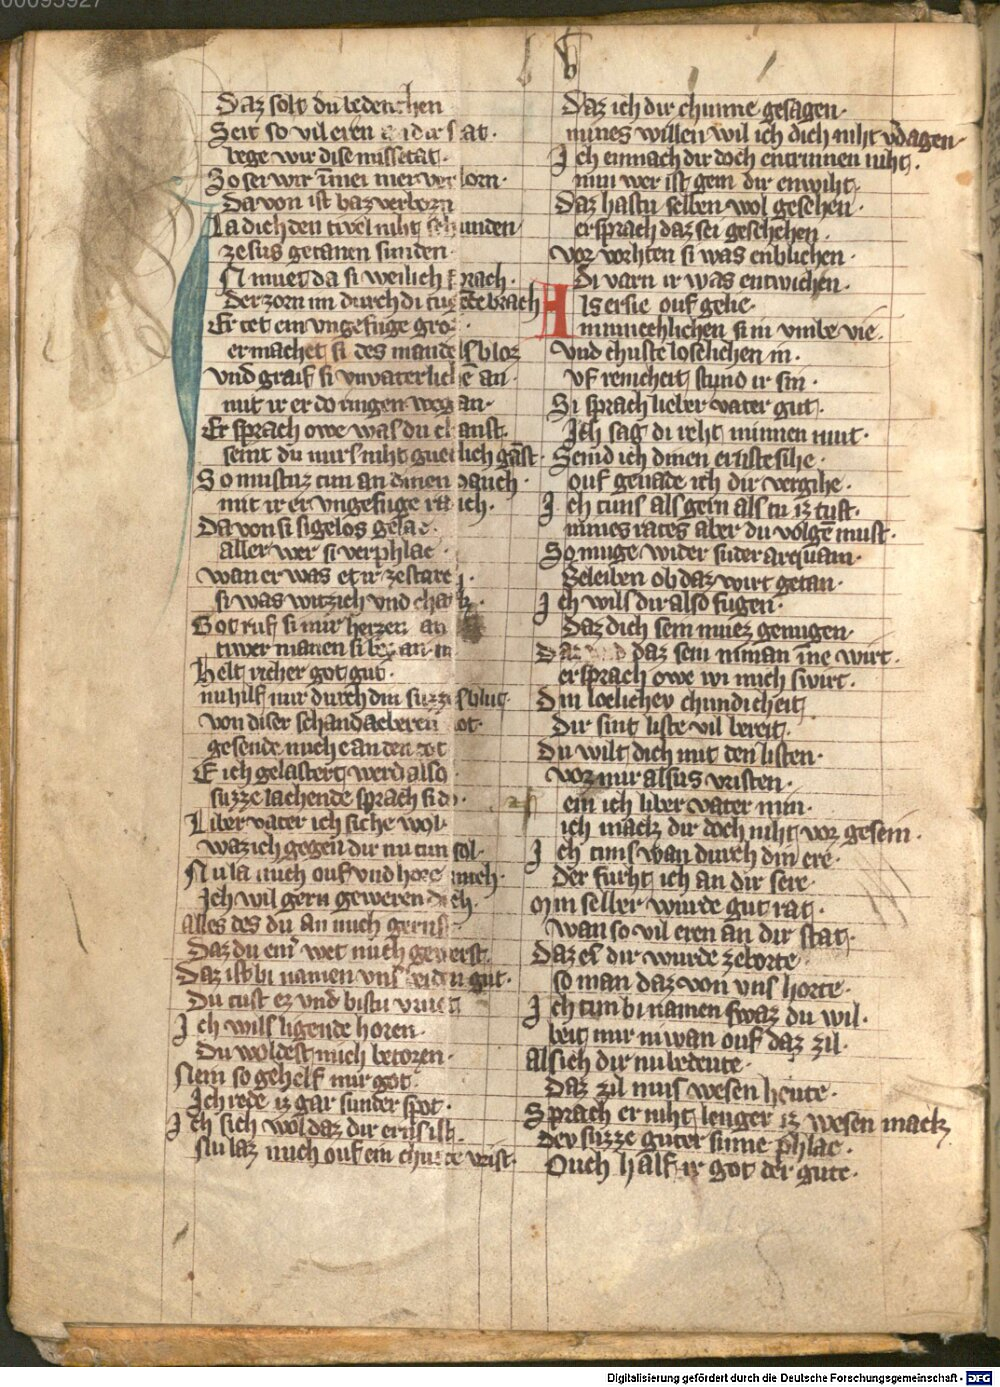 00095927
Daz solt du bedenchen
Seit so vil eren an dir stat.
bege wir dise missetat.
So sei wir immer mer verlorn.
Da von ist baz verborn
La dich den tivel niht schunden
ze sus getanen sunden.
In muet da si weilich sprach.
Der zorn im durch di tugende brach
Er tet ein ungefuge groz.
er machet si des mandels bloz
Und graif si unvaterlichen an.
mit ir er do ringen began.
Er sprach owe was du chanst.
seint du mirs niht guetlich ganst.
So mustuz tun an dinen danch.
mit ir er ungefuge ranch.
Da von si sigelos gelac.
aller wer si verphlac.
wan er was et ir ze starc
si was witzich und charch.
Got ruf si mit herzen an
tiwer manen si began in
Helt richer got gut.
nu hilf mir durch din suzzes blut.
von diser schandaeberen not.
gesende mich e an den tot
E ich gelastert werd also
suzze lachende sprach si do.
Liber vater ich siche wol.
waz ich gegen dir nu tun sol.
Nu la mich ouf und hore mich.
Ich wil gern geweren dich.
Alles des du an mich gerst
Daz du eim wet mich gewerst.
Daz ist bi namen uns beiden gut.
Du tust ez und bistu vruet
Ich wils ligende horen.
Du woldest mich betoren.
Nein so gehelf mir got.
Ich rede iz gar sunder spot.
Ich sich wol daz dir ernst ist.
Nu laz mich ouf ein churtze vrist.
Daz ich dir chunne gesagen.
mines willen wil ich dich niht vdagen.
Ich einmach dir doch entrinnen niht.
min wer ist gein dir enwiht.
Daz hastu selben wol gesehen.
er sprach daz sei geschehen.
vor vorhten si was erblichen.
Di varn ir was entwichen.
Als er sie ouf gelie.
minnechlichen si in umbe vie.
Und chuste loselichen in.
Uf renicheit stund ir sin.
Si sprach lieber vater gut.
Ich sag di reht minnen mut.
Seind ich dinen ernst ersihe.
ouf genade ich dir vergihe.
Ich tuns als gern als tu iz tust.
mines rates aber du volgen must.
So muge wider suder arquam.
Beleiben ob daz wirt getan.
Ich wils dir also fugen.
Daz dich sein muez genugen.
daz sein niman inne wirt.
er sprach owe wi mich swirt.
Din loelichev chundicheit
Dir sint liste vil bereit.
Du wilt dich mit den listen.
vor mir alsus vristen.
ein ich liber vater min.
ich mack dir doch niht vor gesein.
Ich tuns wan durch din ere.
Der furht ich an dir sere.
Min selber wurde gut rat.
wan so vil eren an dir stat.
Daz es dir wurde zeborte.
so man daz von uns horte.
Ich tun bi namen swaz du wil.
beit mir niwan ouf daz zil.
als ich dir nu bedeute.
Daz zil muis wesen heute.
Sprach er niht lenger iz wesen mack
Dev suzze guter sinne phlac.
Ouch half ir got der gute.
Digitalisierung gefördert durch die Deutsche Forschungsgemeinschaft - DFG